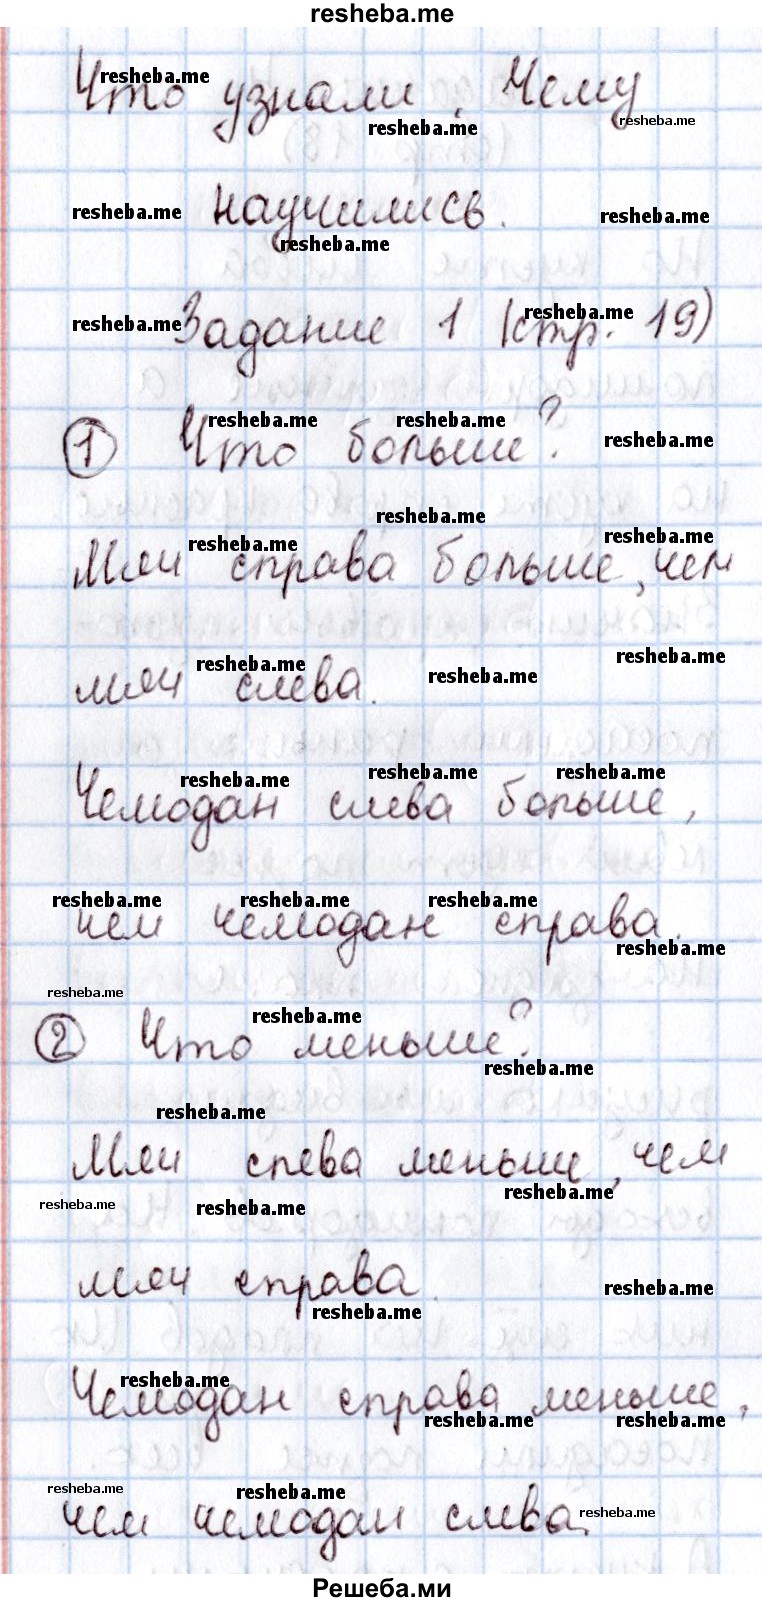 resheba.me
Что узнали. Чему
научились.
Задание 1 (стр. 19)
1 Что больше?
Мяч справа больше, чем
мяч слева.
Чемодан слева больше,
чем чемодан справа.
2 Что меньше?
Мяч слева меньше, чем
мяч справа.
Чемодан справа меньше,
чем чемодан слева.
Решеба.ми